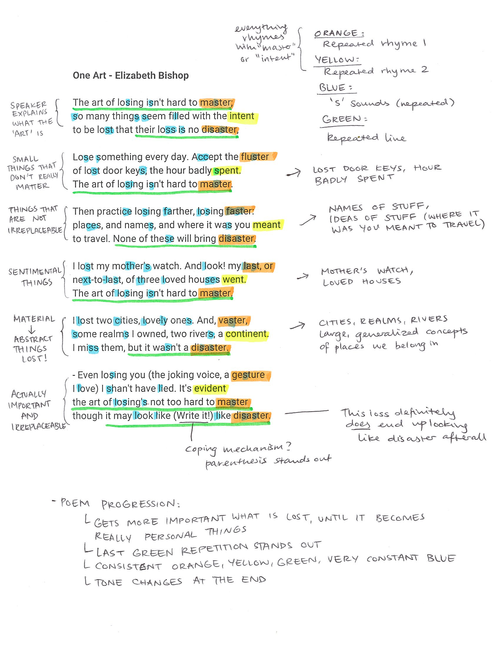 everything
rhymes
with "master"
or "intent"
ORANGE:
Repeated rhyme 1
YELLOW:
Repeated rhyme 2
BLUE:
'S' Sounds (repeated)
GREEN:
Repeated line
One Art - Elizabeth Bishop
SPEAKER
EXPLAINS
WHAT THE
'ART' IS
The art of losing isn't hard to master,
so many things seem filled with the intent
to be lost that their loss is no disaster.
SMALL
THINGS THAT
DON'T REALLY
MATTER
Lose something every day. Accept the fluster
of lost door keys, the hour badly spent.
The art of losing isn't hard to master.
LOST DOOR KEYS, HOUR
BADLY SPENT
THINGS THAT
ARE NOT
IRREPLACEABLE
Then practice losing farther, losing faster:
places, and names, and where it was you meant
to travel. None of these will bring disaster.
NAMES OF STUFF,
IDEAS OF STUFF (WHERE IT
WAS YOU MEANT TO TRAVEL)
SENTIMENTAL
THINGS
I lost my mother's watch. And look! my last, or
next-to-last, of three loved houses went.
The art of losing isn't hard to master.
MOTHER'S WATCH,
LOVED HOUSES
MATERIAL
↓
ABSTRACT
THINGS
LOST!
I lost two cities, lovely ones. And, vaster,
some realms I owned, two rivers, a continent.
I miss them, but it wasn't a disaster.
CITIES, REALMS, RIVERS
Large, generalized concepts
of places we belong in
ACTUALLY
IMPORTANT
AND
IRREPLACEABLE
- Even losing you (the joking voice, a gesture
I love) I shan't have lied. It's evident
the art of losing's not too hard to master
though it may look like (Write it!) like disaster.
This loss definitely
does end up looking
like disaster afterall
coping mechanism?
parenthesis stands out
- POEM PROGRESSION:
GETS MORE IMPORTANT WHAT IS LOST, UNTIL IT BECOMES
REALLY PERSONAL THINGS
LAST GREEN REPETITION STANDS OUT
CONSISTENT ORANGE, YELLOW, GREEN, VERY CONSTANT BLUE
TONE CHANGES AT THE END